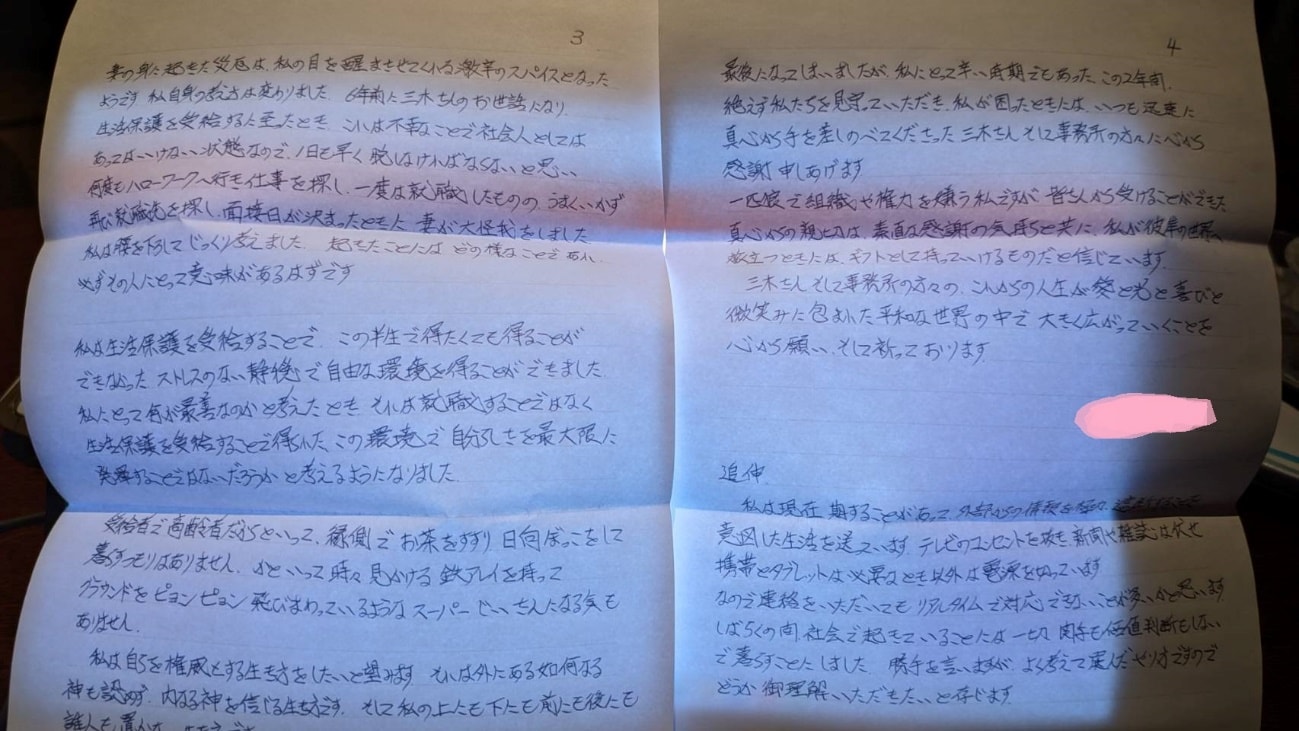 3
妻の身に起きた災厄は、私の目を醒まさせてくれる激辛のスパイスとなった
ようです 私自身の考え方は変わりました。6年前に三木さんのお世話になり
生活保護を受給するに至ったとき、これは不幸なことで社会人としては
あってはいけない状態なので、1日も早く脱しなければならないと思い
何度もハローワークへ行き仕事を探し、一度は就職したものの うまくいかず
再び就職先を探し、面接日が決まったときに 妻が大怪我をしました
私は腰を下ろしてじっくり考えました。起きたことには どの様なことであれ
必ずその人にとって意味があるはずです
私は生活保護を受給することで この半生で得たくても得ることが
できなかった ストレスのない静穏で自由な環境を得ることができました
私にとって何が最善なのかと考えたとき それは就職することではなく
生活保護を受給することで得られた、この環境で自分らしさを最大限に
発揮することではないだろうか と考えるようになりました
受給者で高齢者だからといって、縁側でお茶をすすり 日向ぼっこをして
暮すつもりはありません、かといって時々見かける 鉄アレイを持って
グラウンドをピョンピョン 飛びまわっているような スーパーじいさんになる気も
ありません
私は自らを権威とする生き方をしたいと望みます それは外にある如何なる
神も認めず、内なる神を信じる生き方です。そして私の上にも下にも前にも後にも
誰人も置かない
4
最後になってしまいましたが、私にとって辛い時期でもあった、この2年間、
絶えず私たちを見守っていただき、私が困ったときには いつも迅速に
真心から手を差しのべてくださった 三木さん そして事務所の方々に心から
感謝申しあげます
一匹狼で組織や権力を嫌う私ですが 皆さんから受けることができた
真心からの親切は 素直な感謝の気持ちと共に、私が彼岸の世界へ
旅立つときには、ギフトとして持っていけるものだと信じています
三木さん そして事務所の方々の、これからの人生が 愛と光と喜びと
微笑みに包まれた平和な世界の中で 大きく広がっていくことを
心から願い、そして祈っております
追伸
私は現在 期することがあって 外部からの情報を極力 遮断することを
意図した生活を送っています テレビのコンセントを抜き 新聞や雑誌は伏せ
携帯とタブレットは必要なとき以外は電源を切っています
なので連絡をいただいても リアルタイムで対応できないことが多いかと思います
しばらくの間、社会で起きていることには 一切 関与も価値判断もしない
で暮らすことにしました 勝手を言いますが、よく考えて選んだやり方ですので
どうか御理解いただきたいと存じます